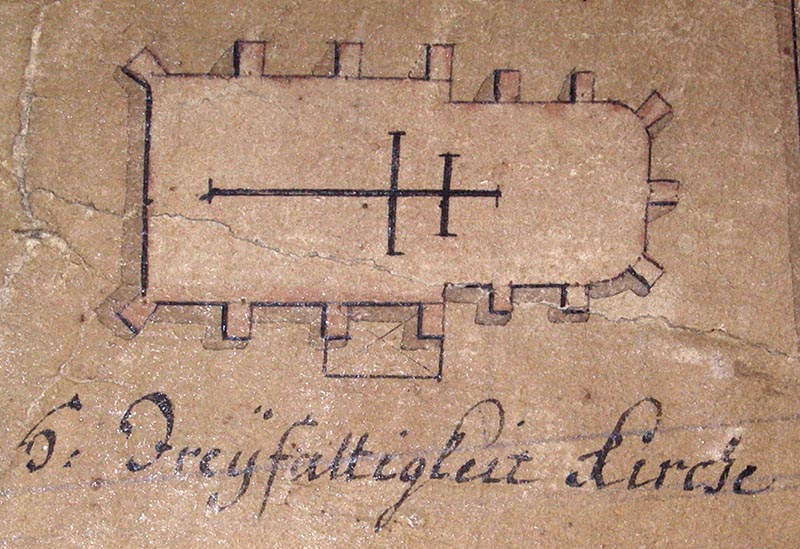 H: Dreÿfaltigkeit Kirche